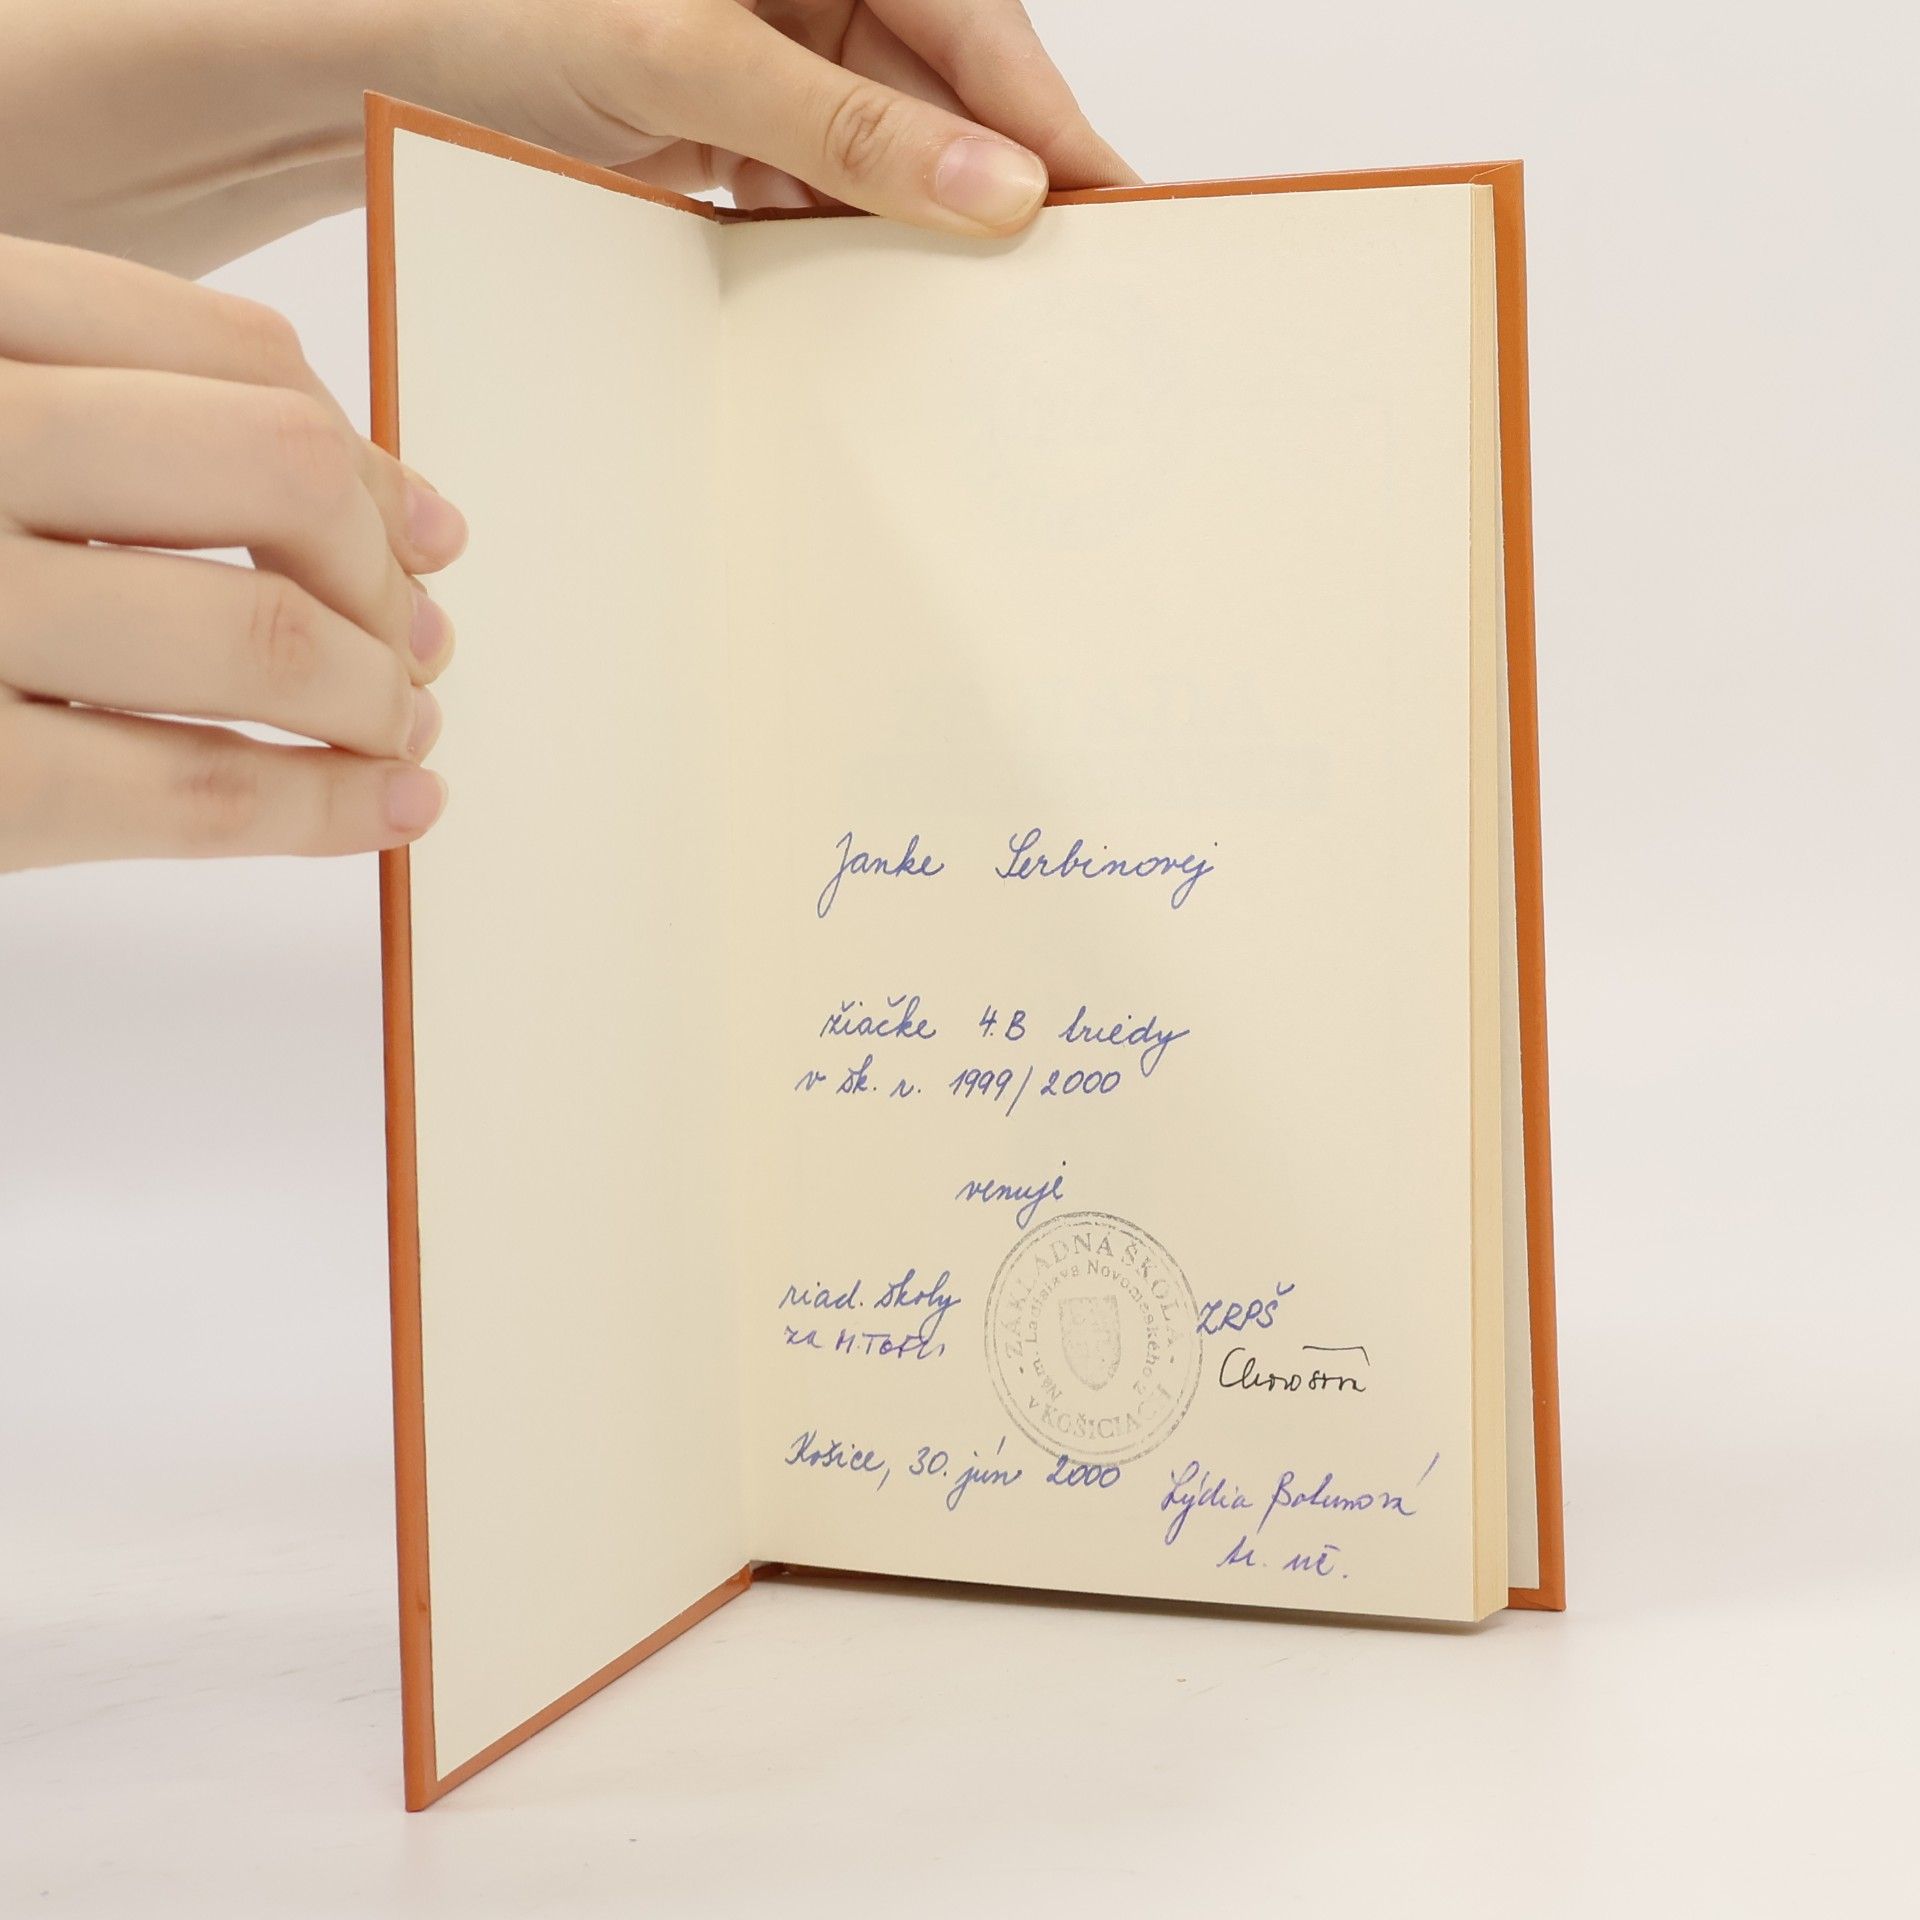 Janke Serbinovej
žiačke 4.B triedy
v šk. r. 1999/2000
venuje
riad. školy
za
ZRPŠ
- ZÁKLADNÁ ŠKOLA -
Nám. Ladislava Novomeského 2
v KOŠICIACH
Košice, 30. jún 2000
Lýdia
tr. uč.